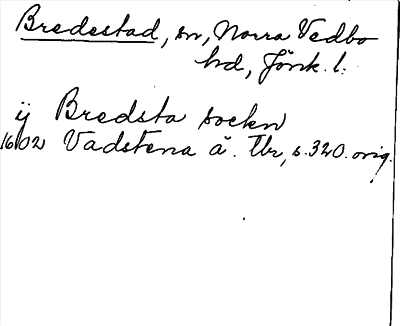 Bredestad, sn, Norra Vedbo
hd, Jönk. l.
ij Bredsta sockn
1602 Vadstena ä. Tbr, s. 320. orig.